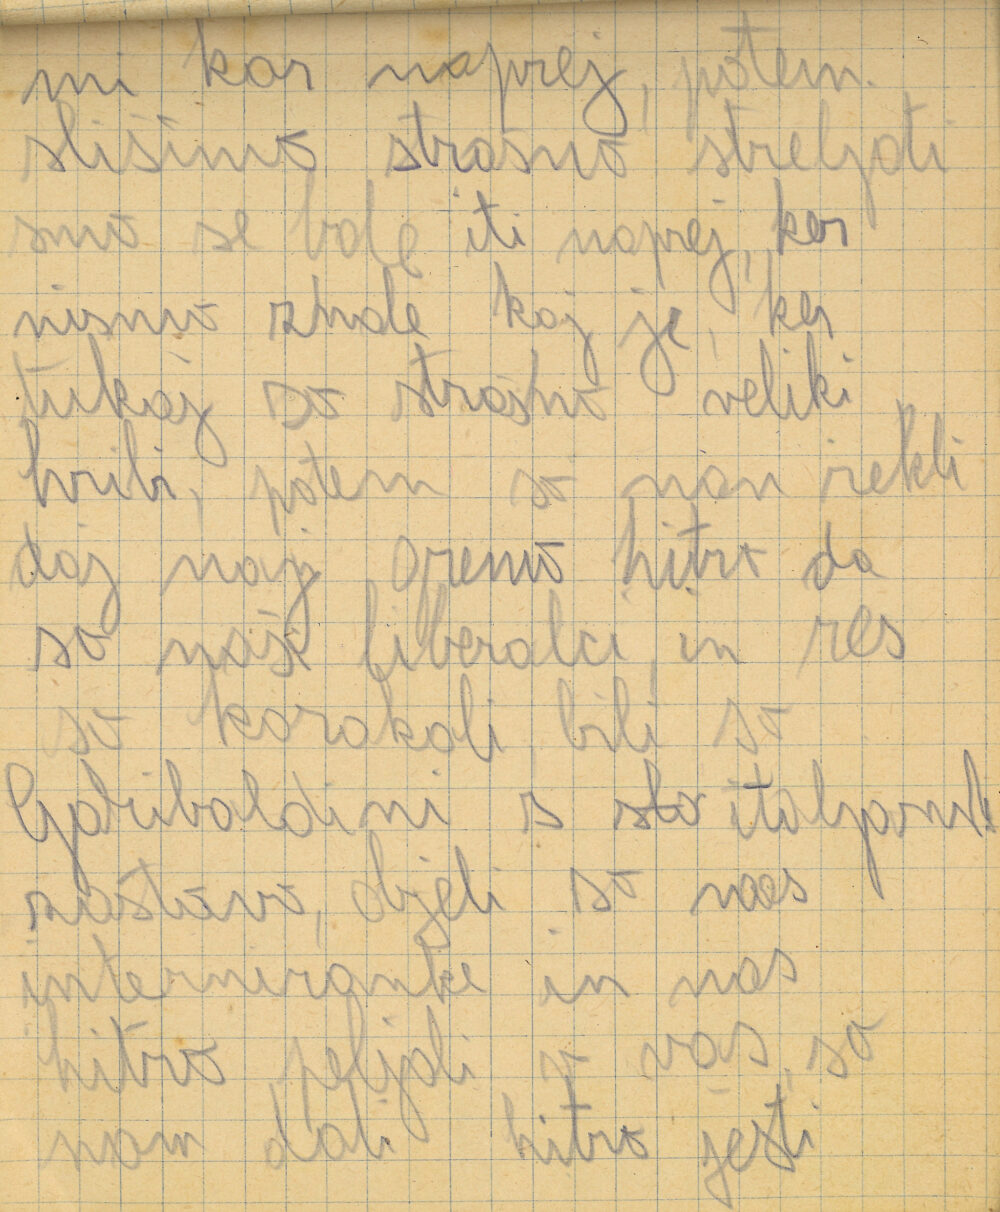 mi kar naprej, potem.
slišimo strašno streljati
smo se bale iti naprej, ker
nismo znale kaj je, ker
tukaj so strašno veliki
hribi, potem so nan rekli
daj naj gremo hitro da
so naši liberalci, in res
so korakali, bili so
Garibaldini s sto italjansk
zastavo, objeli so nas
interniranke in nas
hitro peljali v vas, so
nam dali hitro jesti